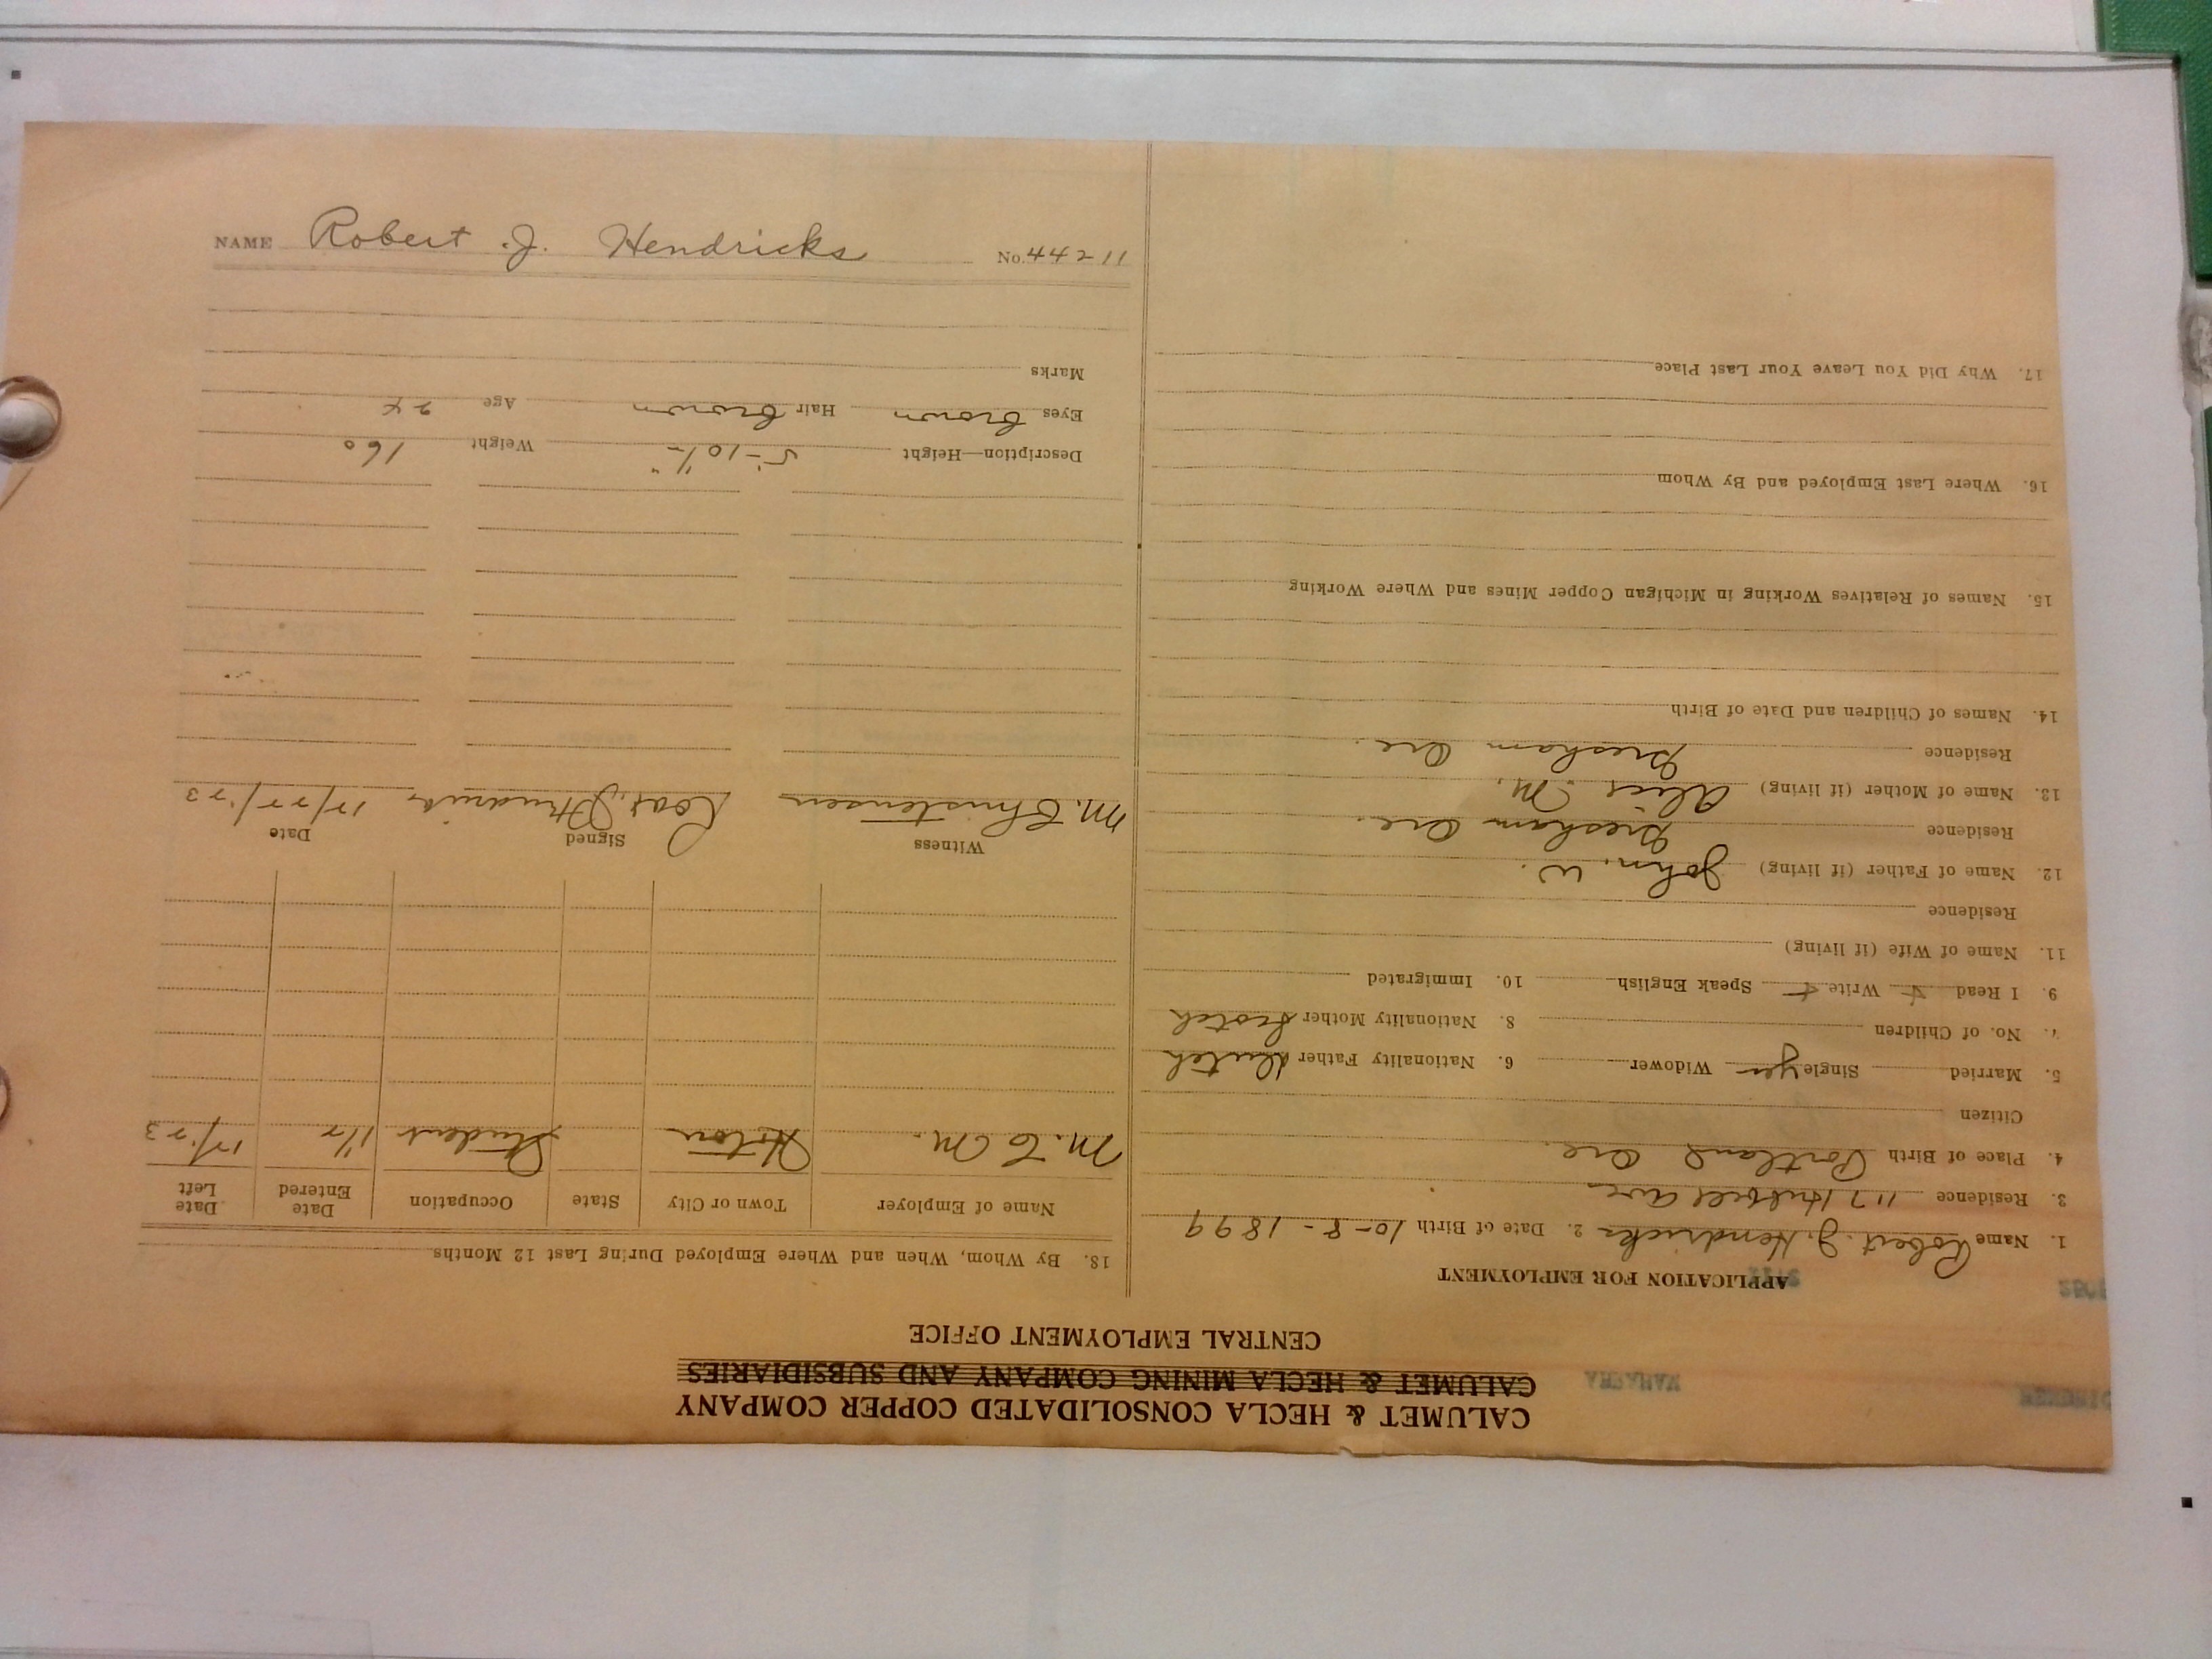 CALUMET & HECLA CONSOLIDATED COPPER COMPANY
CALUMET & HECLA MINING COMPANY AND SUBSIDIARIES
CENTRAL EMPLOYMENT OFFICE
APPLICATION FOR EMPLOYMENT
1. Name Robert J. Hendricks 2. Date of Birth 10-8-1899
3. Residence 117 Hubbell Ave
4. Place of Birth Portland Ore.
Citizen
5. Married Single yes Widower 6. Nationality Father Dutch
7. No. of Children 8. Nationality Mother Scotch
9. I Read Write Speak English 10. Immigrated
11. Name of Wife (if living)
Residence
12. Name of Father (if living) John. W.
Residence Gresham Ore.
13. Name of Mother (if living) Alice M.
Residence Gresham Ore.
14. Names of Children and Date of Birth
15. Names of Relatives Working in Michigan Copper Mines and Where Working
16. Where Last Employed and By Whom
17. Why Did You Leave Your Last Place
18. By Whom, When and Where Employed During Last 12 Months
Name of Employer Town or City State Occupation Date Entered Date Left
M. C. M. Hoton Student
Witness Signed Date
M. Christensen Robt. J Hendricks 12/22/23
Description—Height 5'-10½" Weight 160
Eyes Brown Hair Brown Age 24
Marks
NAME Robert J. Hendricks No. 44211